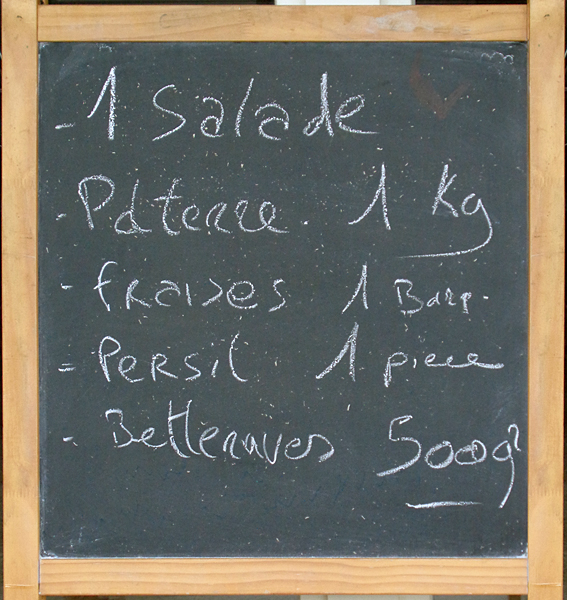 - 1 Salade
- Pdterre. 1 Kg
- fraises 1 Barq.
= Persil 1 piece
- Betteraves 500g